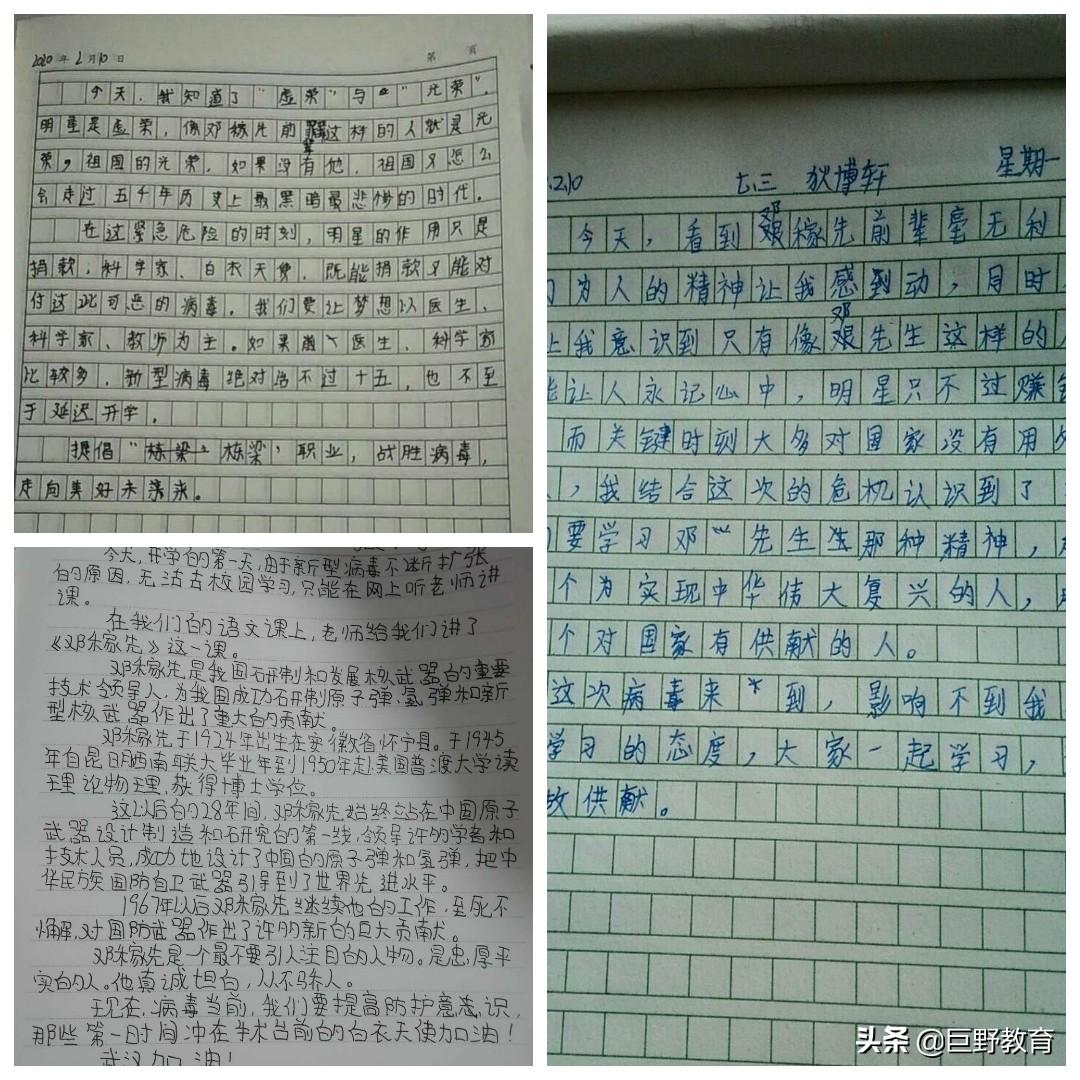 2020年2月10日 第 页
今天，我知道了“虚荣”与“光荣”．
明星是虚荣，像邓稼先前辈这样的人就是光
荣，祖国的光荣．如果没有他．祖国又怎么
会走过五千年历史上最黑暗最悲惨的时代。
在这紧急危险的时刻，明星的作用只是
捐款；科学家、白衣天使．既能捐款又能对
付这些可恶的病毒．我们要让梦想以医生、
科学家、教师为主．如果医生、科学家
比较多．新型病毒绝对活不过十五，也不至
于延迟开学．
提倡“栋梁”职业，战胜病毒，
走向美好未来。
今天，开学的第一天，由于新型病毒不断扩张
的原因，无法去校园学习，只能在网上听老师讲
课。
在我们的语文课上，老师给我们讲了
《邓稼先》这一课。
邓稼先是我国研制和发展核武器的重要
技术领导人，为我国成功研制原子弹、氢弹和新
型核武器作出了重大的贡献。
邓稼先于1924年出生在安徽省怀宁县。于1945
年自昆明西南联大毕业年到1950年赴美国普渡大学读
理论物理，获得博士学位。
这以后的28年间，邓稼先始终站在中国原子
武器设计制造和研究的第一线，领导许多学者和
技术人员，成功地设计了中国的原子弹和氢弹，把中
华民族国防自卫武器引导到了世界先进水平。
1967年以后邓稼先继续他的工作，至死不
懈，对国防武器作出了许多新的巨大贡献。
邓稼先是一个最不要引人注目的人物。是忠厚平
实的人。他真诚坦白，从不骄人。
现在，病毒当前，我们要提高防护意识，
那些第一时间冲在手术台前的白衣天使加油！
武汉加油！
.2.10 七.三 狄博轩 星期一
今天，看到邓稼先前辈毫无利
为人的精神让我感到动，同时
上我意识到只有像邓先生这样的人
能让人永记心中，明星只不过赚钱
而关键时刻大多对国家没有用处
，我结合这次的危机认识到了
要学习邓先生那种精神，
个为实现中华伟大复兴的人，
个对国家有供献的人。
这次病毒来到，影响不到我
学习的态度，大家一起学习，
做供献。
头条 @巨野教育